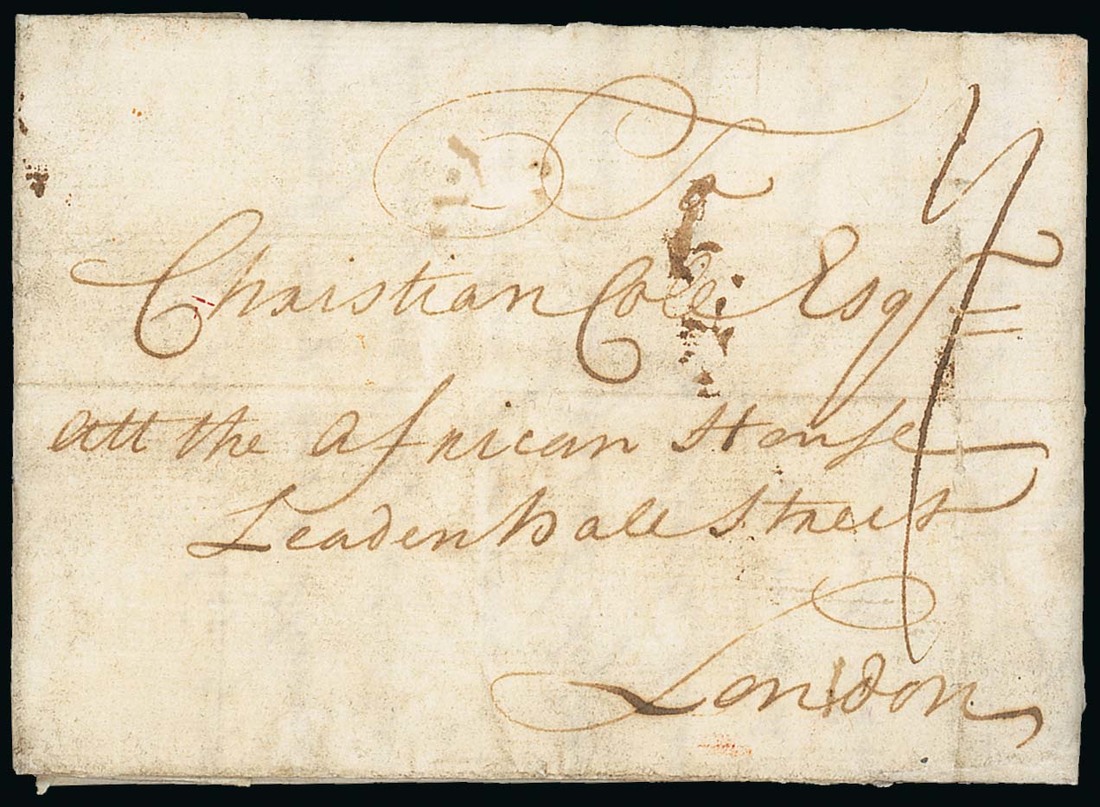 To
Christian Cole Esqr
att the African House
Leadenhall Street
London